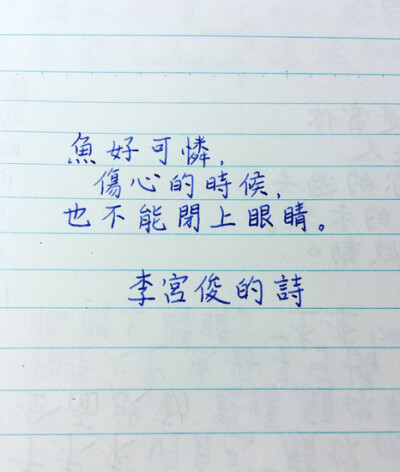 魚好可憐,
傷心的時候,
也不能閉上眼睛。
李宮俊的詩